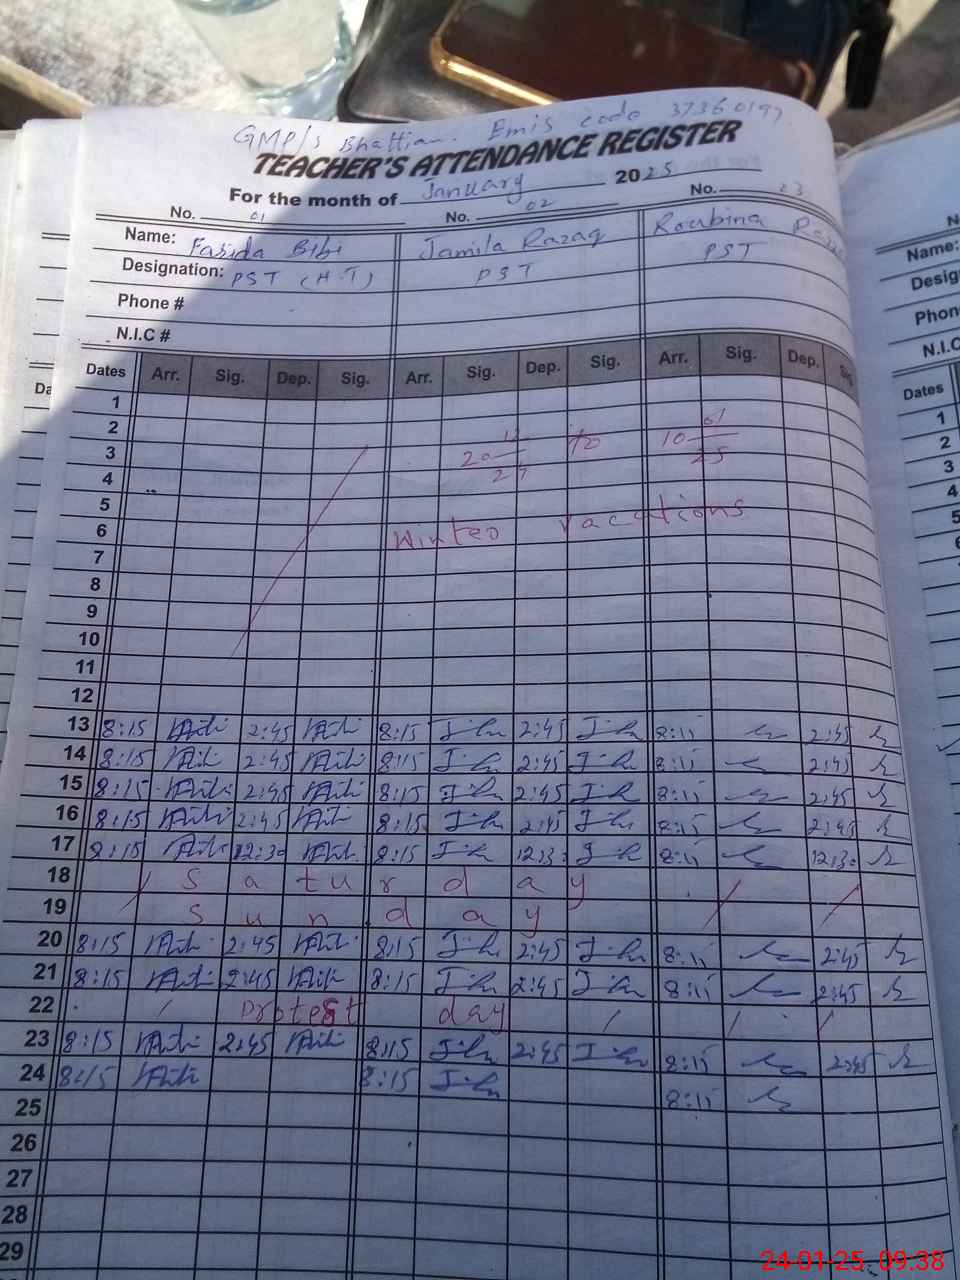 GMP/S Bhattian. Emis code 37360197
TEACHER'S ATTENDANCE REGISTER
For the month of January 2025
No. 01 No. 02 No. 23
Name: Farida Bibi Jamila Razaq Roubina
Designation: PST (H.T) PST PST
Phone #
N.I.C #
Dates Arr. Sig. Dep. Sig. Arr. Sig. Dep. Sig. Arr. Sig. Dep.
1
2
3 20 12/27 to 10 01/25
4
5
6 Winteo vacations
7
8
9
10
11
12
13 8:15 2:45 8:15 2:45 8:15 2:45
14 8:15 2:45 8:15 2:45 8:15 2:45
15 8:15 2:45 8:15 2:45 8:15 2:45
16 8:15 2:45 8:15 2:45 8:15 2:45
17 8:15 12:30 8:15 12:30 8:15 12:30
18 Saturday
19 Sunday
20 8:15 2:45 8:15 2:45 8:15 2:45
21 8:15 2:45 8:15 2:45 8:15 2:45
22 Protest day
23 8:15 2:45 8:15 2:45 8:15 2:45
24 8:15 8:15 8:15
25
26
27
28
29
No.
Name:
Desig
Phon
N.I.C
Dates
1
2
3
4
5
6
7
8
9
24-01-25 09:38